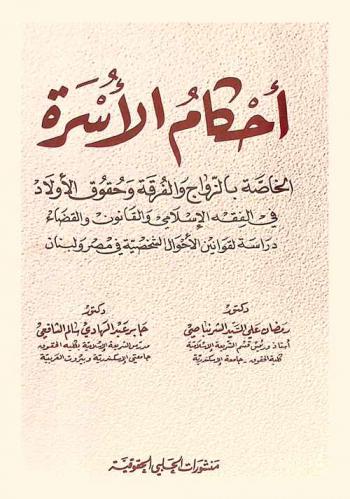 أحكام الأسرة
الخاصة بالزواج والفرقة وحقوق الأولاد
في الفقه الإسلامي والقانون والقضاء
دراسة لقوانين الأحوال الشخصية في مصر ولبنان
دكتور
رمضان علي السيد الشرنباصي
أستاذ ورئيس قسم الشريعة الإسلامية
كلية الحقوق - جامعة الإسكندرية
دكتور
جابر عبد الهادي سالم الشافعي
مدرس الشريعة الإسلامية بكلية الحقوق
جامعتي الإسكندرية وبيروت العربية
منشورات الحلبي الحقوقية